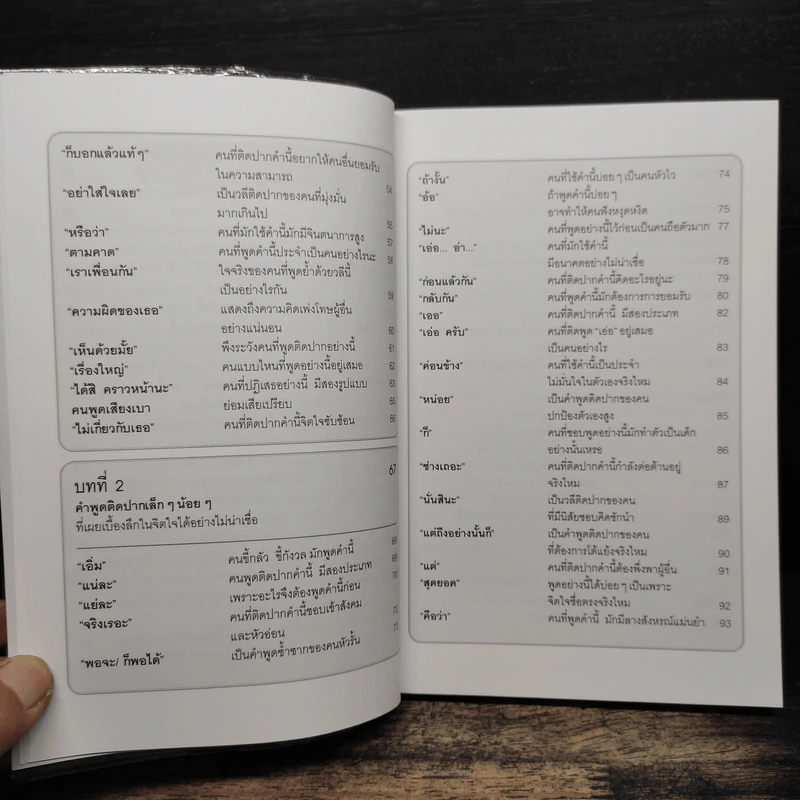 “ก็บอกแล้วแท้ๆ” คนที่ติดปากคำนี้อยากให้คนอื่นยอมรับ
ในความสามารถ 54
“อย่าใส่ใจเลย” เป็นวลีติดปากของคนที่มุ่งมั่น
มากเกินไป 56
“หรือว่า” คนที่มักใช้คำนี้มักมีจินตนาการสูง 57
“ตามคาด” คนที่พูดคำนี้ประจำเป็นคนอย่างไรนะ 58
“เราเพื่อนกัน” ใจจริงของคนที่พูดย้ำด้วยวลีนี้
เป็นอย่างไรกัน 59
“ความผิดของเธอ” แสดงถึงความคิดเพ่งโทษผู้อื่น
อย่างแน่นอน 60
“เห็นด้วยมั้ย” พึงระวังคนที่พูดติดปากอย่างนี้ 61
“เรื่องใหญ่” คนแบบไหนที่พูดอย่างนี้อยู่เสมอ 62
“ได้สิ คราวหน้านะ” คนที่ปฏิเสธอย่างนี้ มีสองรูปแบบ 63
คนพูดเสียงเบา ย่อมเสียเปรียบ 65
“ไม่เกี่ยวกับเธอ” คนที่ติดปากคำนี้จิตใจซับซ้อน 66
บทที่ 2 67
คำพูดติดปากเล็ก ๆ น้อย ๆ
ที่เผยเบื้องลึกในจิตใจได้อย่างไม่น่าเชื่อ
“เอิ่ม” คนขี้กลัว ขี้กังวล มักพูดคำนี้ 68
“แน่ละ” คนพูดติดปากคำนี้ มีสองประเภท 69
“แย่ละ” เพราะอะไรจึงต้องพูดคำนี้ก่อน 70
“จริงเรอะ” คนที่ติดปากคำนี้ชอบเข้าสังคม
และหัวอ่อน
“พอจะ/ ก็พอได้” เป็นคำพูดซ้ำซากของคนหัวรั้น
“ถ้างั้น” คนที่ใช้คำนี้บ่อย ๆ เป็นคนหัวไว 74
“อ้อ” ถ้าพูดคำนี้บ่อย ๆ
อาจทำให้คนฟังหงุดหงิด 75
“ไม่นะ” คนที่พูดอย่างนี้ไว้ก่อนเป็นคนถือตัวมาก 77
“เอ่อ... อ่า...” คนที่มักใช้คำนี้
มีอนาคตอย่างไม่น่าเชื่อ 78
“ก่อนแล้วกัน” คนที่ติดปากคำนี้คิดอะไรอยู่นะ 79
“กลับกัน” คนที่พูดคำนี้มักต้องการการยอมรับ 80
“เออ” คนที่ติดปากคำนี้ มีสองประเภท 82
“เอ่อ ครับ” คนที่ติดพูด “เอ่อ” อยู่เสมอ
เป็นคนอย่างไร 83
“ค่อนข้าง” คนที่ใช้คำนี้เป็นประจำ
ไม่มั่นใจในตัวเองจริงไหม 84
“หน่อย” เป็นคำพูดติดปากของคน
ปกป้องตัวเองสูง 85
“ก็” คนที่ชอบพูดอย่างนี้มักทำตัวเป็นเด็ก
อย่างนั้นเหรอ 86
“ช่างเถอะ” คนที่ติดปากคำนี้กำลังต่อต้านอยู่
จริงไหม 87
“นั่นสินะ” เป็นวลีติดปากของคน
ที่มีนิสัยชอบคิดชักนำ 89
“แต่ถึงอย่างนั้นก็” เป็นคำพูดติดปากของคน
ที่ต้องการโต้แย้งจริงไหม 90
“แต่” คนที่ติดปากคำนี้ต้องพึ่งพาผู้อื่น 91
“สุดยอด” พูดอย่างนี้ได้บ่อย ๆ เป็นเพราะ
จิตใจซื่อตรงจริงไหม 92
“คือว่า” คนที่พูดคำนี้ มักมีลางสังหรณ์แม่นยำ 93